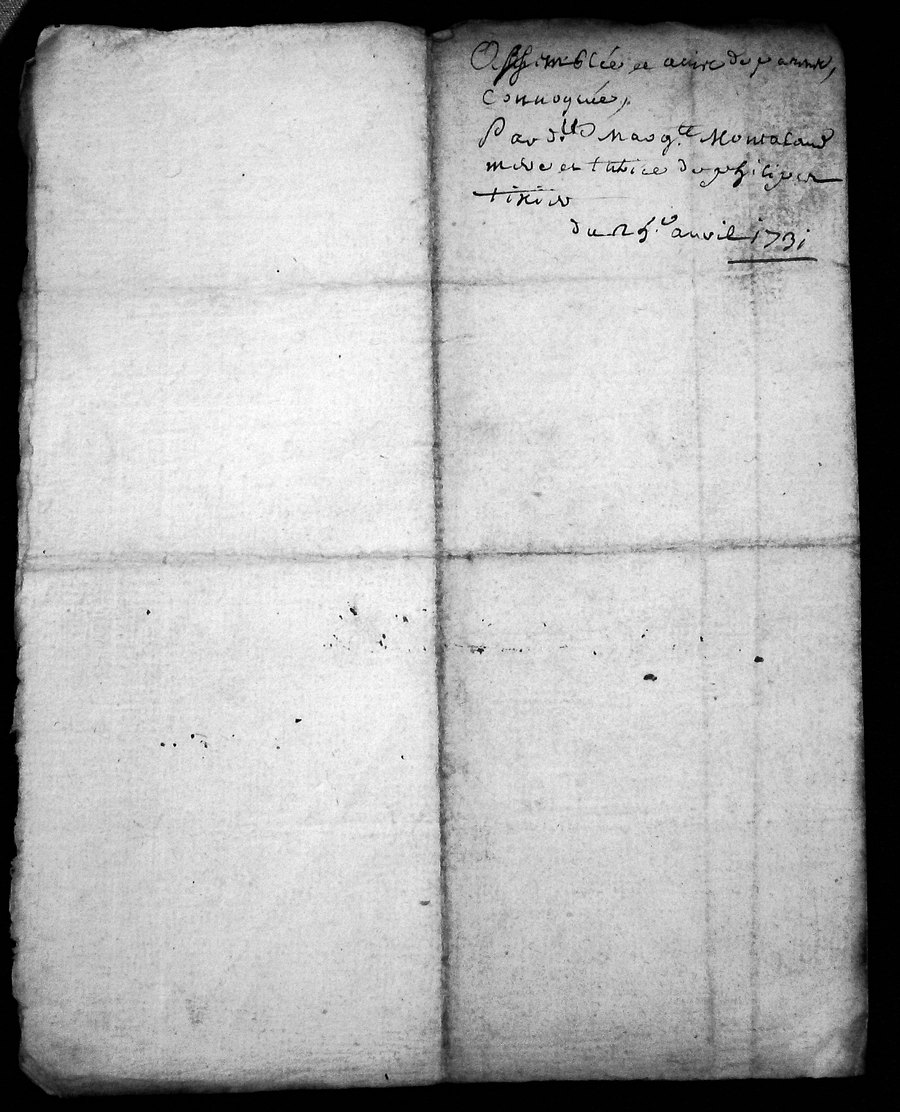 Assemblée et avis de parans,
Convoquée,
Par d.lle Marg.te Montaland
mere et tutrice de philiper
tixier
du 25.e auril 1731